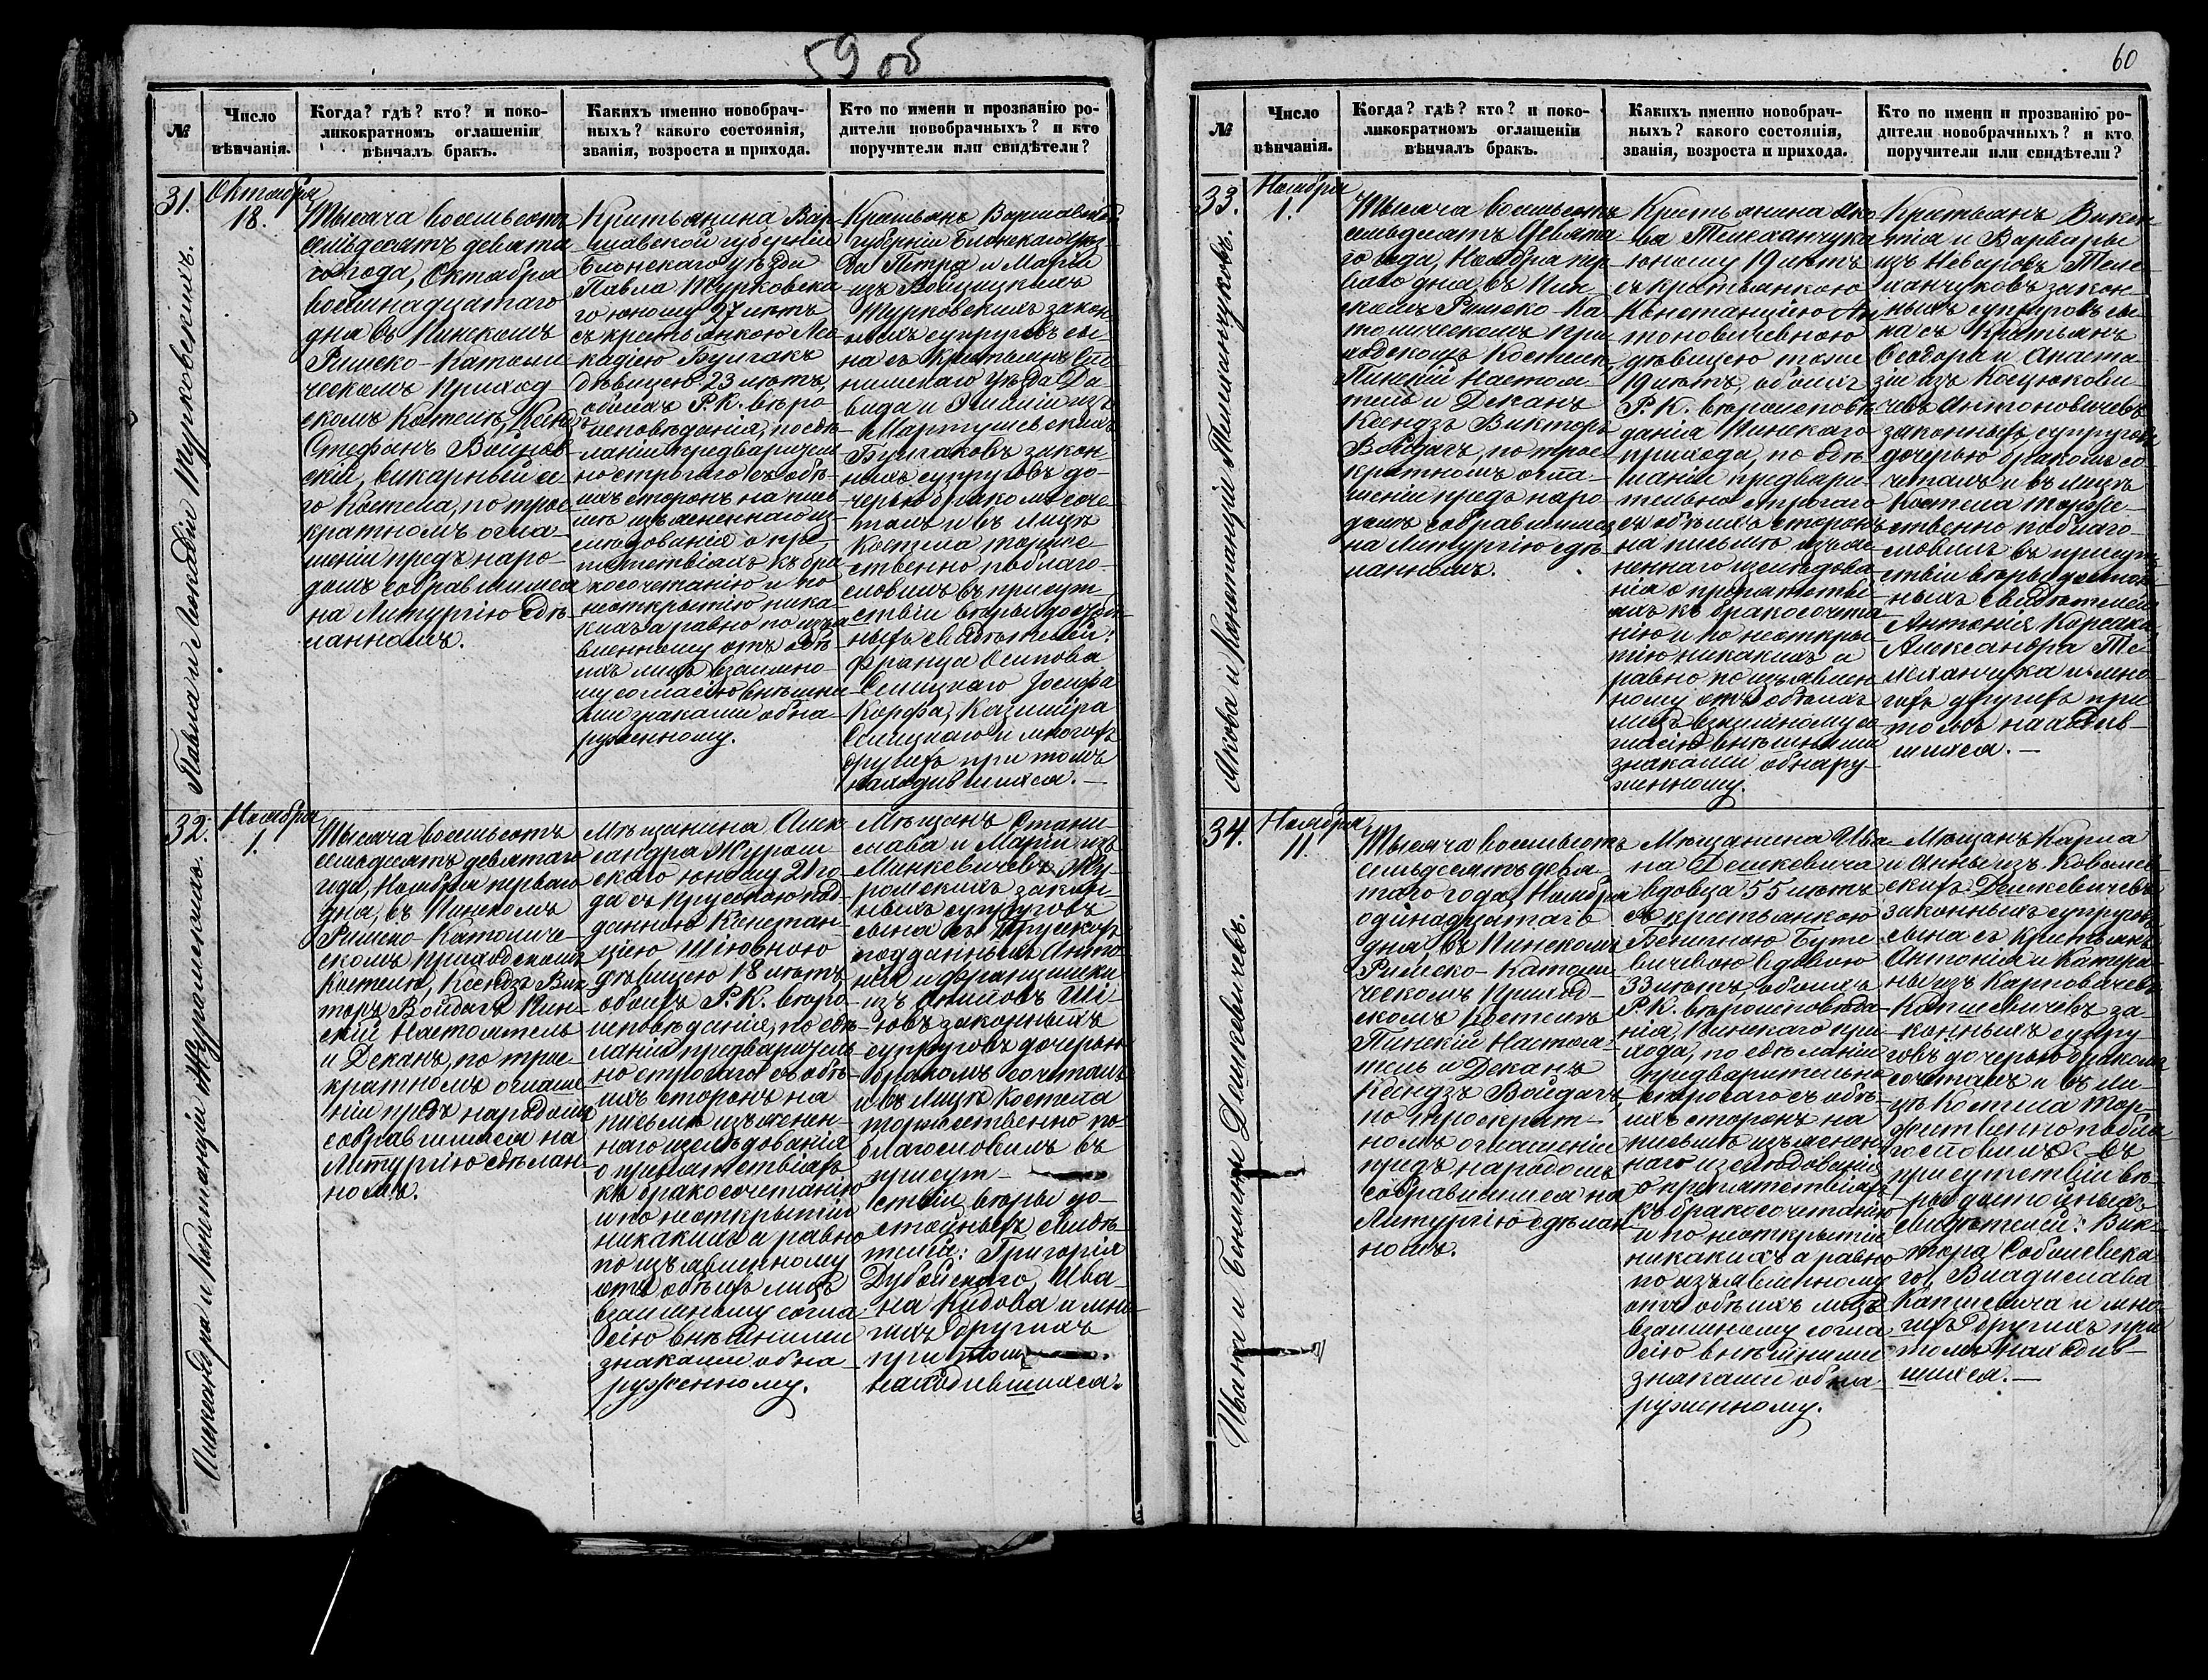 59 об
№
Число
вѣнчанія.
Когда? гдѣ? кто? и поко-
ликократномъ оглашеніи
вѣнчалъ бракъ.
Какихъ именно новобрач-
ныхъ? какого состоянія,
званія, возроста и прихода.
Кто по имени и прозванію ро-
дители новобрачныхъ? и кто
поручители или свидѣтели?
31.
Октября
18.
Павла и Леокадіи Турковскихъ.
Тысяча восемьсотъ
семьдесятъ девята
го года, Октября
восьмнадцатаго
дня въ Пинскомъ
Римско-Католи
ческомъ Приход
скомъ Костелѣ, Ксендзъ
Стефанъ Войнов
скій, викарный се
го Костела, по трое
кратномъ огла-
шеніи предъ наро-
домъ собравшимся
на Литургію сдѣ-
ланномъ.
Крестьянина Вар-
шавской губерніи
Блонскаго уѣзда
Павла Турковска
го юношу 27 лѣтъ
съ крестьянкою Лео
кадіею Булгакъ
дѣвицею 23 лѣтъ,
обоихъ Р.К. вѣро
исповѣданія, по сдѣ
ланіи предваритель
но строгаго съ обѣ-
ихъ сторонъ на пись
мѣ изъясненнаго из-
слѣдованія о пре-
пятствіяхъ къ бра
косочетанію и по
неоткрытію ника-
кихъ а равно по изъя
вленному отъ обѣ
ихъ лицъ взаимно-
му согласію внѣшни
ми знаками обна-
руженному.
Крестьянъ Варшавской
губерніи Блонскаго Уѣз-
да Петра и Маріи
изъ Войцицкихъ
Турковскихъ закон
ныхъ супруговъ сы-
на съ Крестьянъ
Уѣзда Да-
вида и Эмиліи изъ
Мартушевскихъ
Булгаковъ закон
ныхъ супруговъ до-
черью бракомъ соче-
талъ и въ лицѣ
Костела торже
ственно поблаго-
словилъ въ присут
ствіи вѣры достой
ныхъ свидѣтелей:
Франца Осипова
Сѣлицкаго Іосифа
Корфа, Казимира
Сѣлицкаго и многихъ
другихъ при томъ
находившихся.—
32.
Ноября
1.
Александра и Констанціи Журомскихъ.
Тысяча восемьсотъ
семьдесятъ девятаго
года, Ноября перваго
дня, въ Пинскомъ
Римско-Католиче-
скомъ Приходскомъ
Костелѣ, Ксендзъ Вик
торъ Войдагъ Пин-
скій Настоятель
и Деканъ, по трое-
кратномъ оглаше-
ніи предъ народомъ
собравшимся на
Литургію сдѣлан-
номъ.
Мѣщанина Алек
сандра Журом-
скаго юношу 21 го
да съ Прусскою под-
данною Констан-
ціею Шіювною
дѣвицею 18 лѣтъ,
обоихъ Р.К. вѣро-
исповѣданія, по сдѣ-
ланіи предваритель
но строгаго съ обѣ-
ихъ сторонъ на
письмѣ изъяснен-
наго изслѣдованія
о препятствіяхъ
къ бракосочетанію
и по неоткрытіи
никакихъ а равно
по изъявленному
отъ обѣихъ лицъ
взаимному согла-
сію внѣшними
знаками обна-
руженному.
Мѣщанъ Стани-
слава и Маріи изъ
Минкевичевъ Жу-
ромскихъ закон-
ныхъ супруговъ
сына съ Прусскихъ
подданныхъ Анто-
нія и Францишки
изъ Ши-
ювъ законныхъ
супруговъ дочерью
бракомъ сочеталъ
и въ лицѣ Костела
торжественно по-
благословилъ въ
присут-
ствіи вѣры до-
стойныхъ свидѣ-
телей: Григорія
Дубойскаго, Ива-
на Кидова и мно
гихъ другихъ
при томъ
находившихся.
60
№
Число
вѣнчанія.
Когда? гдѣ? кто? и поко-
ликократномъ оглашеніи
вѣнчалъ бракъ.
Какихъ именно новобрач-
ныхъ? какого состоянія,
званія, возроста и прихода.
Кто по имени и прозванію ро-
дители новобрачныхъ? и кто
поручители или свидѣтели?
33.
Ноября
1.
Якова и Констанціи Телеханчуковъ.
Тысяча восемьсотъ
семьдесятъ девята-
го года, Ноября пер
ваго дня, въ Пин
скомъ Римско-Ка-
толическомъ При-
ходскомъ Костелѣ,
Пинскій Настоя-
тель и Деканъ
Ксендзъ Викторъ
Войдагъ, по трое-
кратномъ огла-
шеніи предъ наро-
домъ собравшимся
на Литургію сдѣ-
ланномъ.
Крестьянина Яко
ва Телеханчука
юношу 19 лѣтъ
съ крестьянкою
Констанціею Ан
тоновичевною
дѣвицею тоже
19 лѣтъ, обоихъ
Р.К. вѣроисповѣ-
данія Пинскаго
прихода, по сдѣ-
ланіи предвари-
тельно строгаго
съ обѣихъ сторонъ
на письмѣ изъяс-
неннаго изслѣдова-
нія о препятстві-
яхъ къ бракосочета
нію и по неоткры
тію никакихъ а
равно по изъявлен
ному отъ обѣихъ
лицъ взаимному со
гласію внѣшними
знаками обнару-
женному.
Крестьянъ Викен
тія и Варвары
изъ Неваровъ Теле-
ханчуковъ закон-
ныхъ супруговъ сы
на съ Крестьянъ
Ѳеодора и Анаста
зіи изъ Коцюкови-
чевъ Антоновичевъ
законныхъ супруговъ
дочерью бракомъ со-
четалъ и въ лицѣ
Костела торже-
ственно поблаго-
словилъ въ присут
ствіи вѣры достой
ныхъ свидѣтелей:
Антонія Корсака
Александра Те
леханчука и мно-
гихъ другихъ при
томъ находив-
шихся.—
34.
Ноября
11.
Ивана и Бенигны Дешкевичевъ.
Тысяча восемьсотъ
семьдесятъ девя-
таго года, Ноября
одинадцатаго
дня, въ Пинскомъ
Римско-Католи-
ческомъ Приход-
скомъ Костелѣ
Пинскій Настоя-
тель и Деканъ
Ксендзъ Войдагъ,
по троекрат-
номъ оглашеніи
предъ народомъ
собравшимся на
Литургію сдѣлан
номъ.
Мѣщанина Ива-
на Дешкевича
вдовца 55 лѣтъ
съ крестьянкою
Бенигною Буте-
вичевою вдовою
33 лѣтъ, обоихъ
Р.К. вѣроисповѣда-
нія, Пинскаго при
хода, по сдѣланіи
предварительно
строгаго съ обѣ-
ихъ сторонъ на
письмѣ изъяснен-
наго изслѣдованія
о препятствіяхъ
къ бракосочетанію
и по неоткрытіи
никакихъ а равно
по изъявленному
отъ обѣихъ лицъ
взаимному согла-
сію внѣшними
знаками обна-
руженному.
Мѣщанъ Карла
и Анны изъ Ковалев
скихъ Дешкевичевъ
законныхъ супруговъ
сына съ Крестьянъ
Антонія и Катери-
ны изъ Карповичевъ
Капшевичевъ за-
конныхъ супру-
говъ дочерью бракомъ
сочеталъ и въ ли-
цѣ Костела Тор-
жественно побла-
гословилъ въ
присутствіи вѣ-
ры достойныхъ
свидѣтелей: Вик-
тора Соболевска-
го, Владислава
Капшевича и мно-
гихъ другихъ при
томъ находив-
шихся.—